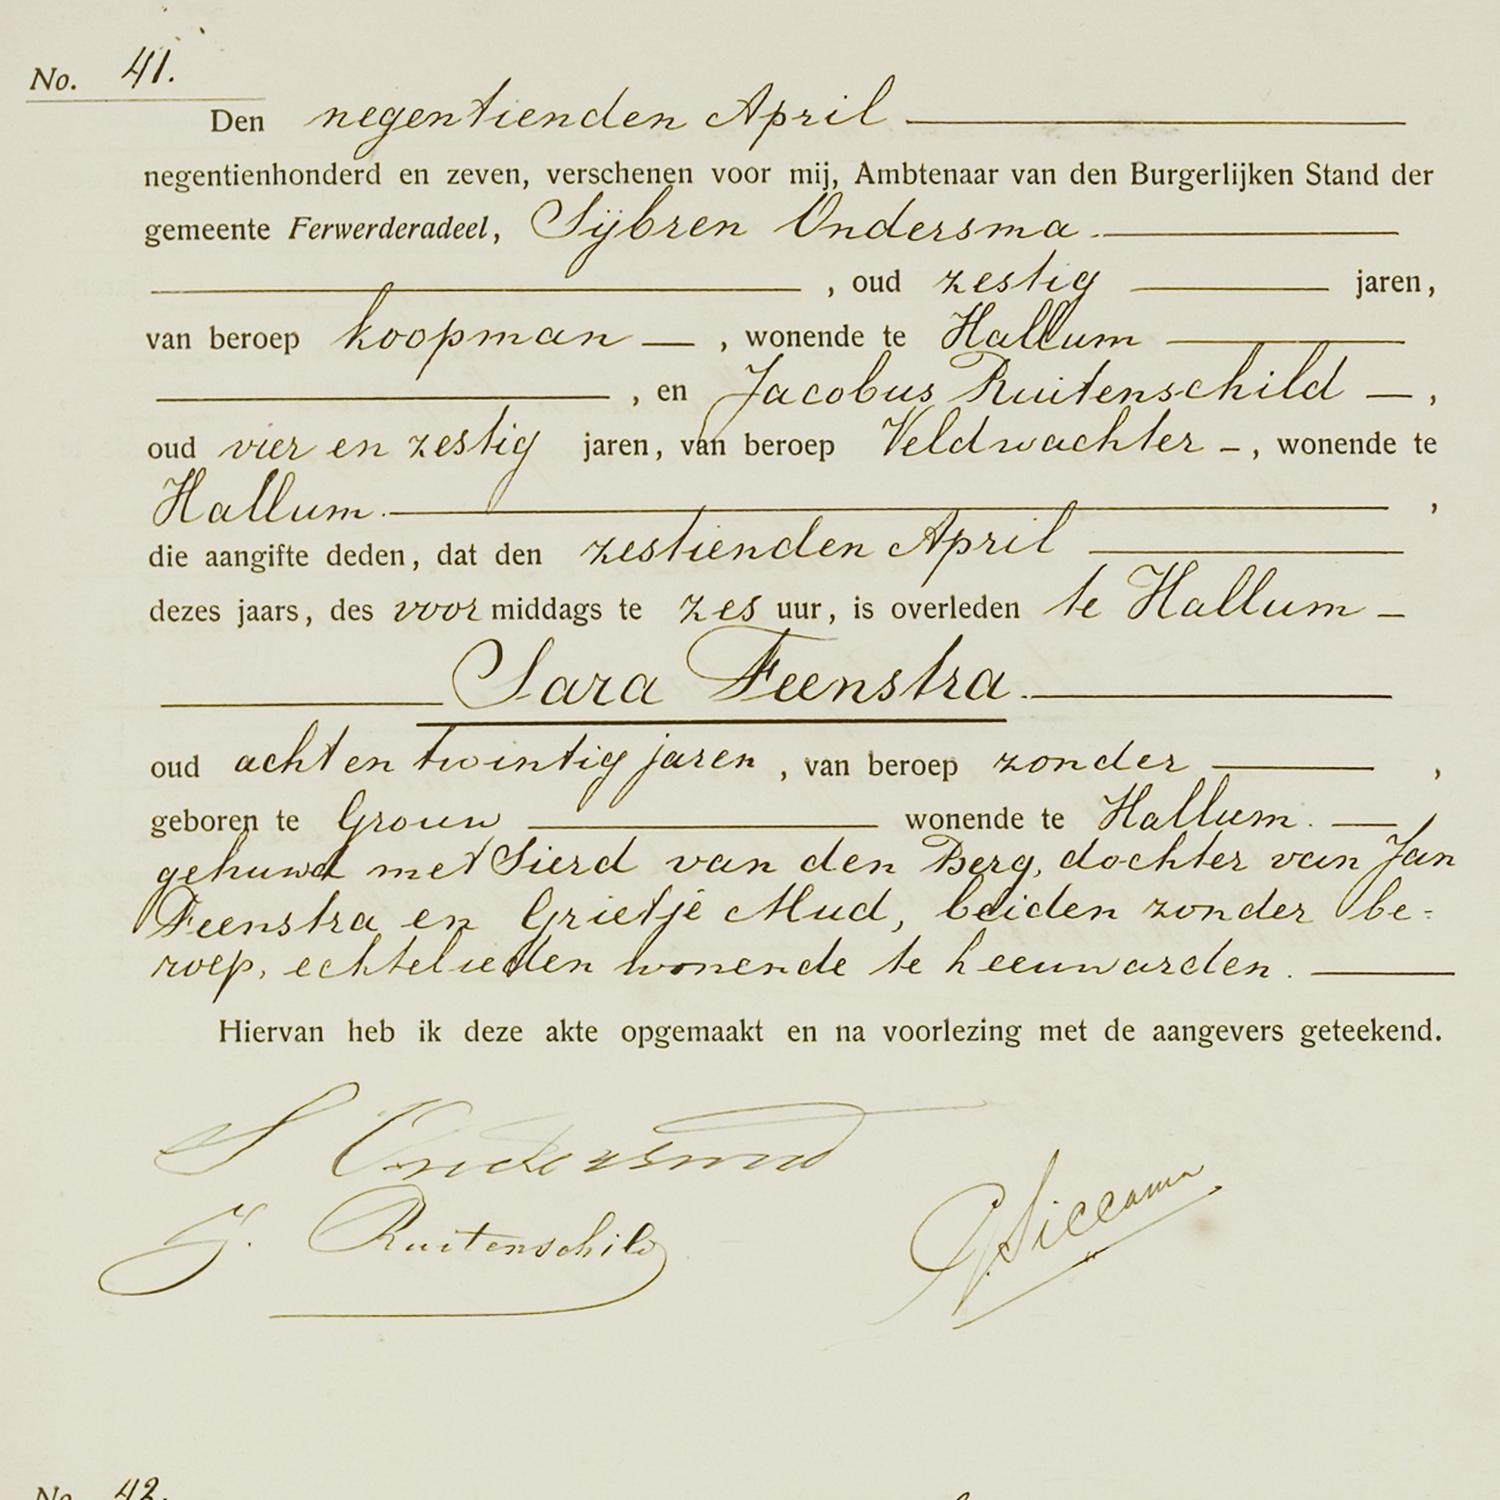 No. 41.
Den negentienden April
negentienhonderd en zeven, verschenen voor mij, Ambtenaar van den Burgerlijken Stand der
gemeente Ferwerderadeel, Sijbren Ondersma.
, oud zestig jaren,
van beroep koopman, wonende te Hallum
, en Jacobus Ruitenschild,
oud vier en zestig jaren, van beroep Veldwachter, wonende te
Hallum. ,
die aangifte deden, dat den zestienden April
dezes jaars, des voormiddags te zes uur, is overleden te Hallum
Sara Feenstra.
oud acht en twintig jaren, van beroep zonder ,
geboren te Grouw wonende te Hallum.
gehuwd met Sierd van den Berg, dochter van Jan
Feenstra en Grietje Mud, beiden zonder be-
roep, echtelieden wonende te Leeuwarden.
Hiervan heb ik deze akte opgemaakt en na voorlezing met de aangevers geteekend.
S Ondersma
J. Ruitenschild
Siccama
No. 42.